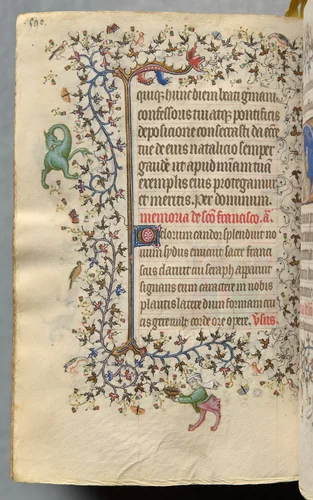 quiq; hunc diem beati giniani
confessoris tui atq; pontificis
depositione consecrasti da ecce
tue de eius natalicio semper
gaude ut apud miam tua
exemplis eius protegamur
et meritis. Per dominum.
memoria de sco francisco. a.
Celorum candor splenduit no
uum sydus emicuit sacer franci
scus claruit cui seraph apparuit
signans eum caractere in
plantis latere dum formam cru
cis gerere uult corde ore opere. Vsus.